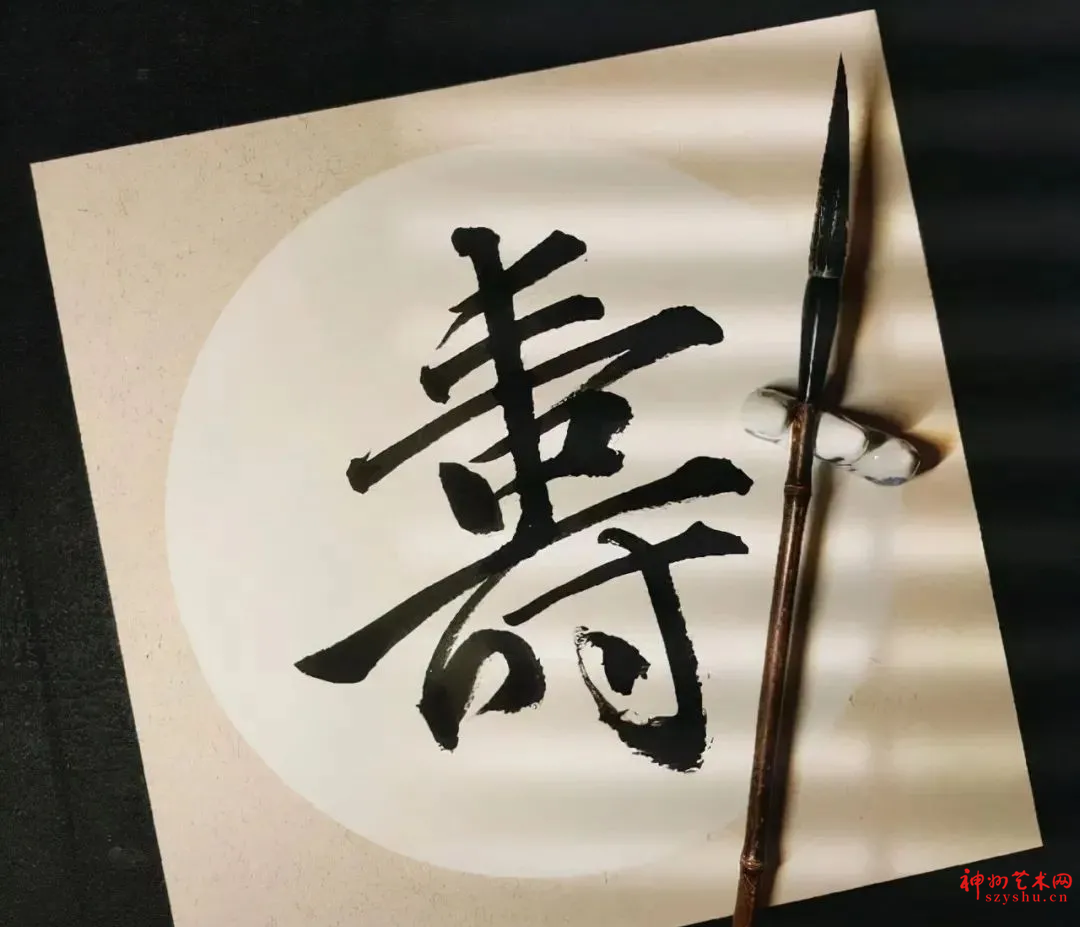 壽
神州艺术网
szyshu.cn